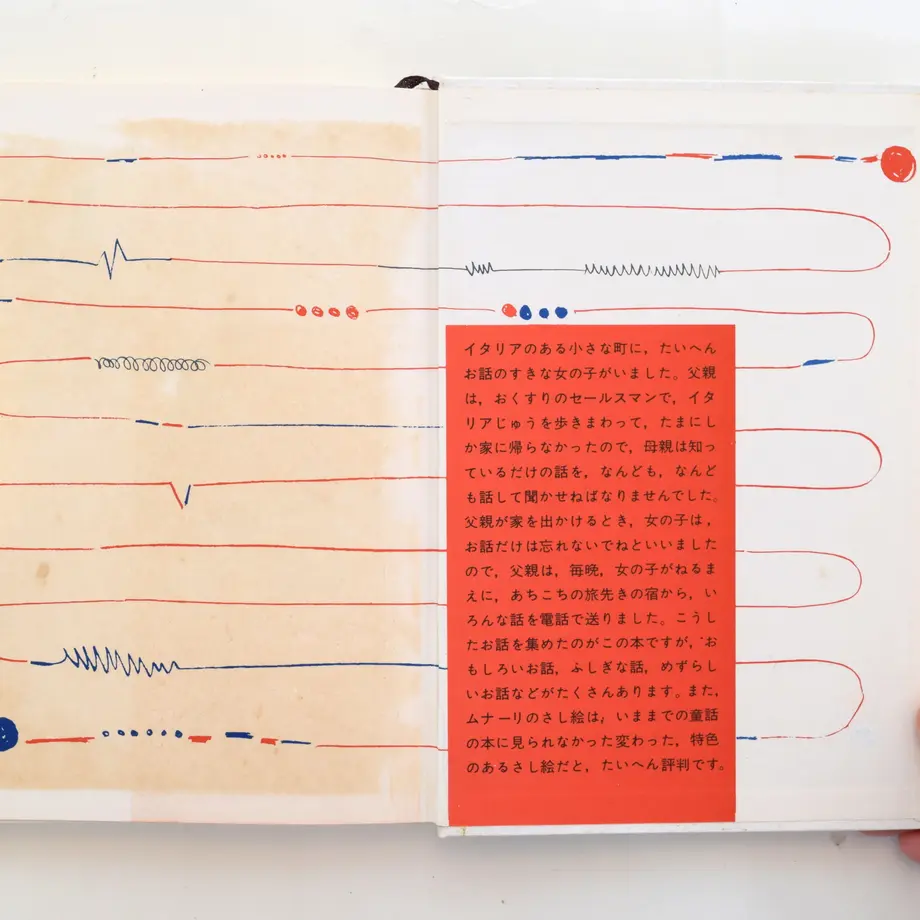 イタリアのある小さな町に，たいへん
お話のすきな女の子がいました。父親
は，おくすりのセールスマンで，イタ
リアじゅうを歩きまわって，たまにし
か家に帰らなかったので，母親は知っ
ているだけの話を，なんども，なんど
も話して聞かせねばなりませんでした。
父親が家を出かけるとき，女の子は，
お話だけは忘れないでねといいました
ので，父親は，毎晩，女の子がねるま
えに，あちこちの旅先きの宿から，い
ろんな話を電話で送りました。こうし
たお話を集めたのがこの本ですが，お
もしろいお話，ふしぎな話，めずらし
いお話などがたくさんあります。また，
ムナーリのさし絵は，いままでの童話
の本に見られなかった変わった，特色
のあるさし絵だと，たいへん評判です。